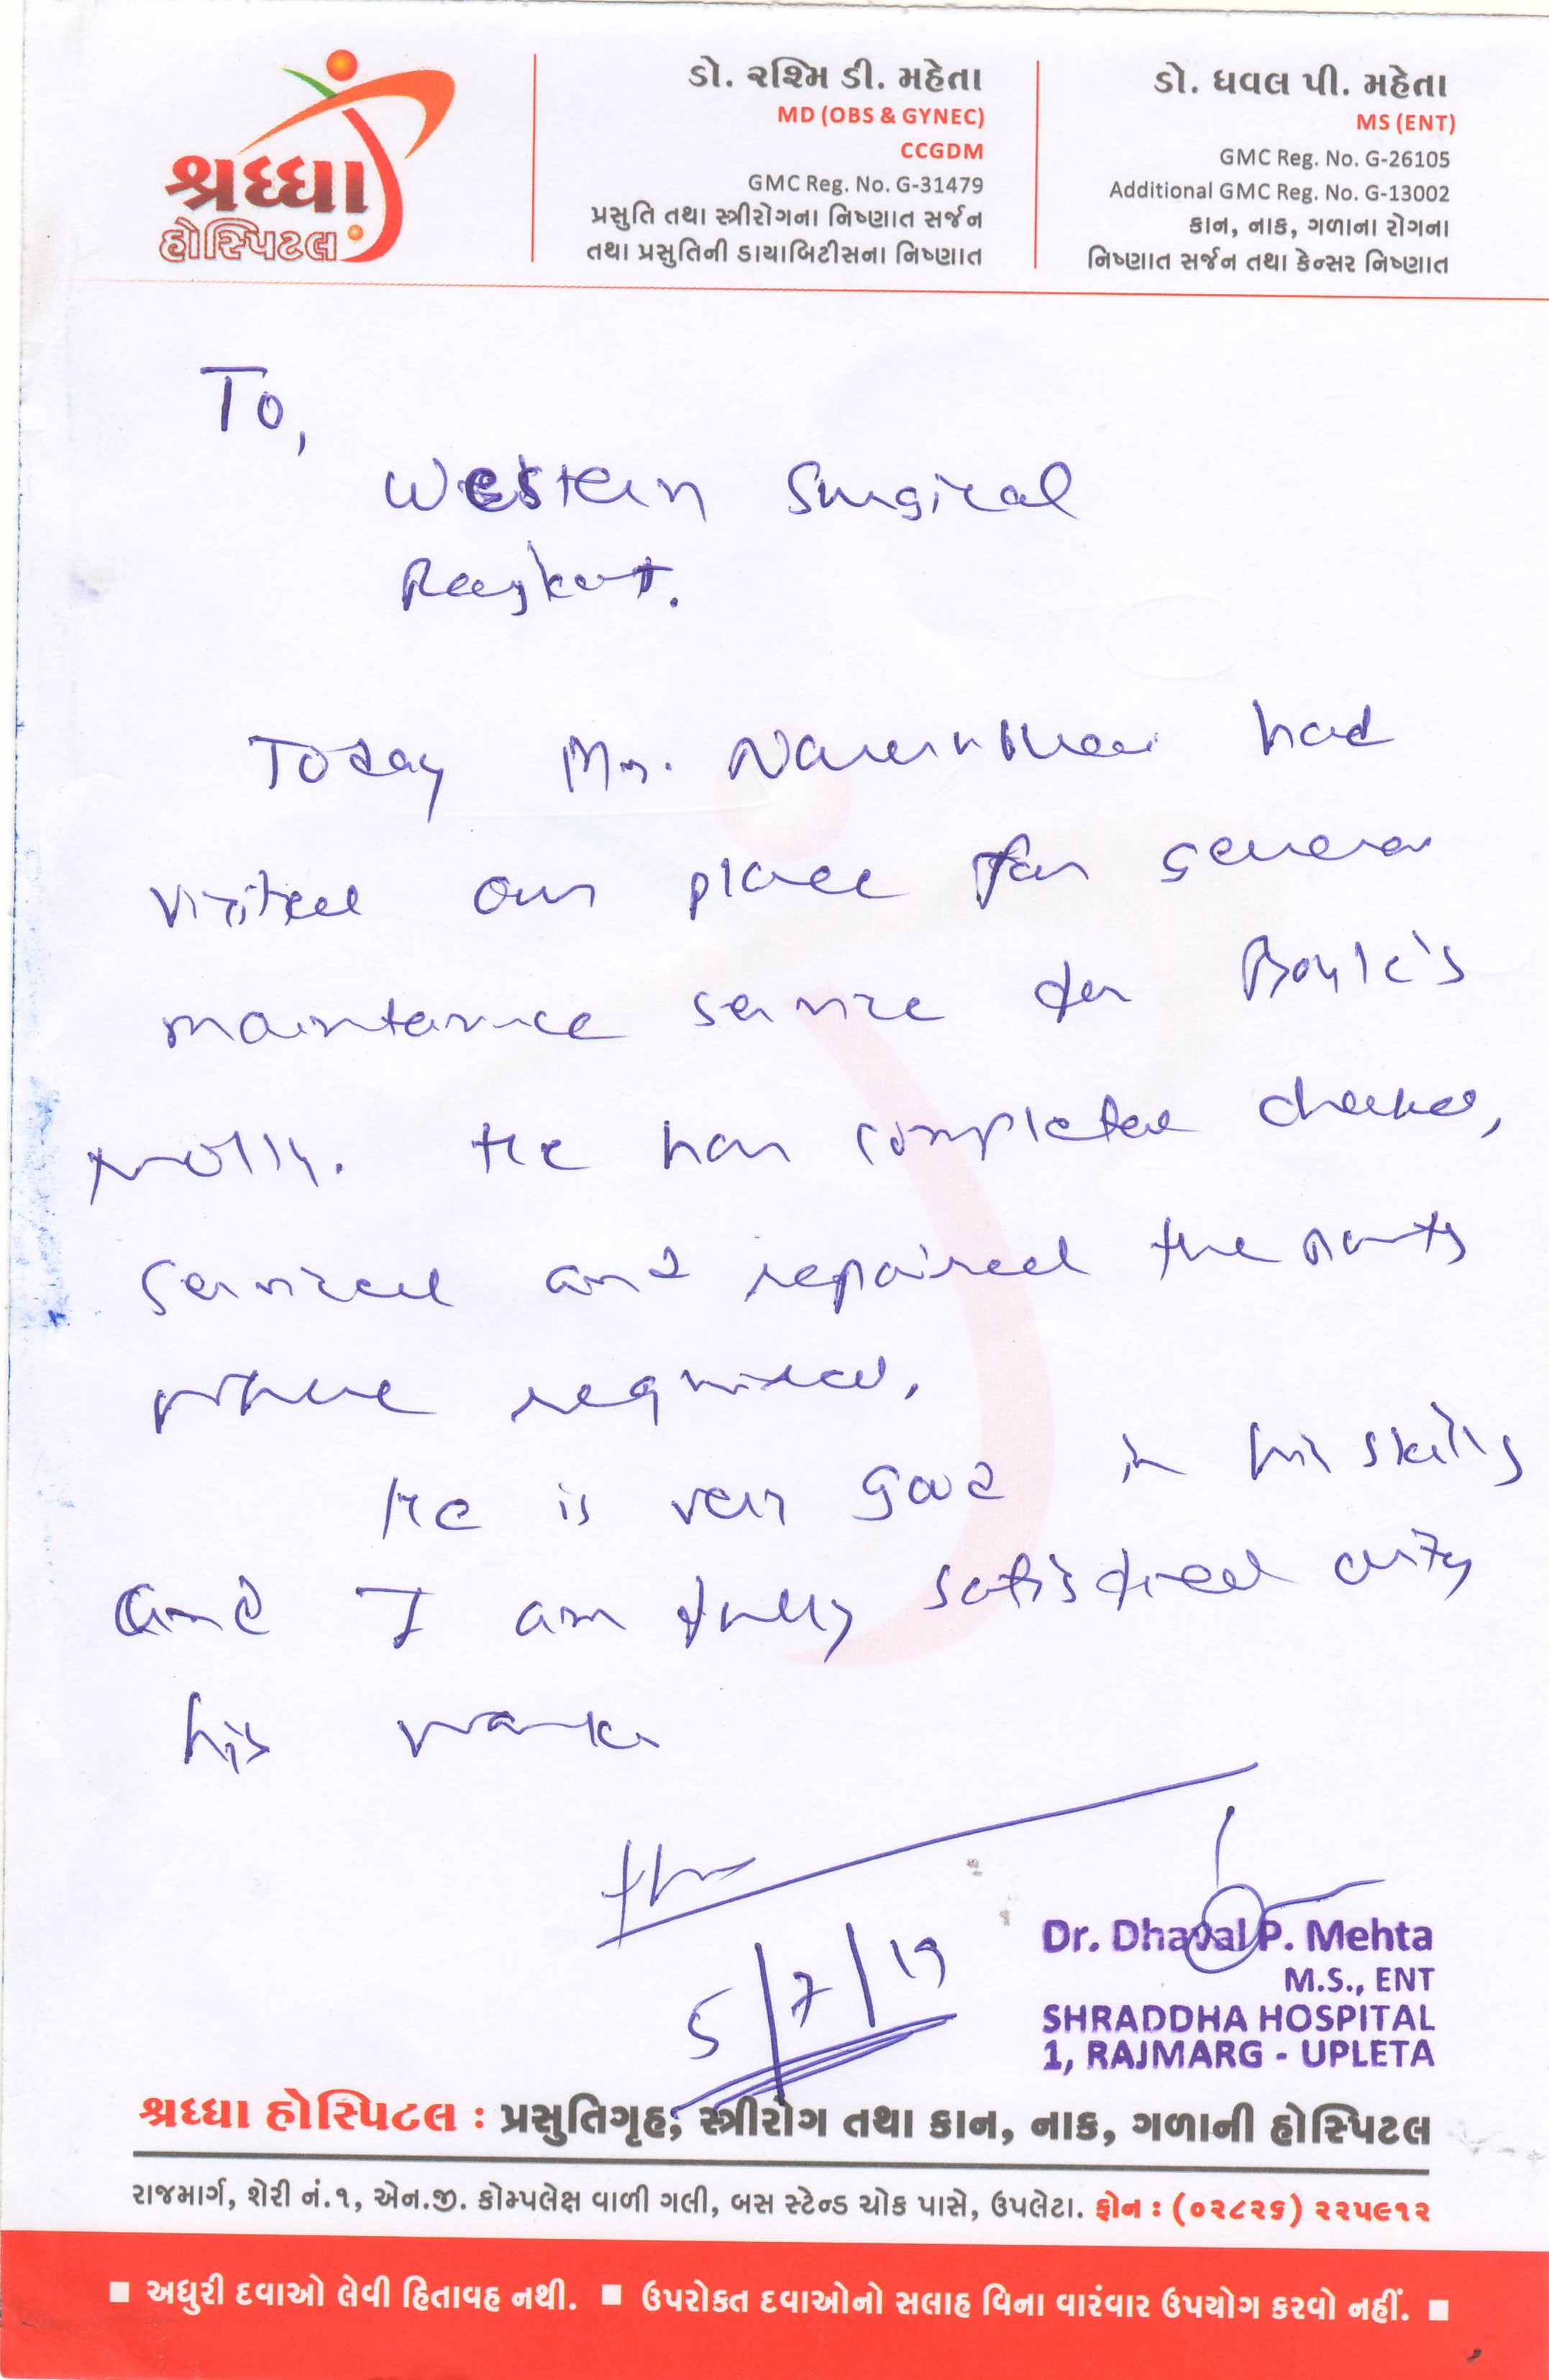 શ્રધ્ધા
હોસ્પિટલ
ડો. રશ્મિ ડી. મહેતા
MD (OBS & GYNEC)
CCGDM
GMC Reg. No. G-31479
પ્રસુતિ તથા સ્ત્રીરોગના નિષ્ણાત સર્જન
તથા પ્રસુતિની ડાયાબિટીસના નિષ્ણાત
ડો. ધવલ પી. મહેતા
MS (ENT)
GMC Reg. No. G-26105
Additional GMC Reg. No. G-13002
કાન, નાક, ગળાના રોગના
નિષ્ણાત સર્જન તથા કેન્સર નિષ્ણાત
To,
Western Surgical
Rajkot.
Today Mr. had
visited our place for general
maintenance service for Boyle's
trolly. He has completed checked,
serviced and repaired the parts
where required.
He is very good in his skills
and I am fully satisfied with
his work
5/7/19
Dr. Dhaval P. Mehta
M.S., ENT
SHRADDHA HOSPITAL
1, RAJMARG - UPLETA
શ્રધ્ધા હોસ્પિટલ : પ્રસુતિગૃહ, સ્ત્રીરોગ તથા કાન, નાક, ગળાની હોસ્પિટલ
રાજમાર્ગ, શેરી નં.૧, એન.જી. કોમ્પલેક્ષ વાળી ગલી, બસ સ્ટેન્ડ ચોક પાસે, ઉપલેટા. ફોન : (૦૨૮૨૬) ૨૨૫૯૧૨
■ અધુરી દવાઓ લેવી હિતાવહ નથી. ■ ઉપરોક્ત દવાઓનો સલાહ વિના વારંવાર ઉપયોગ કરવો નહીં. ■